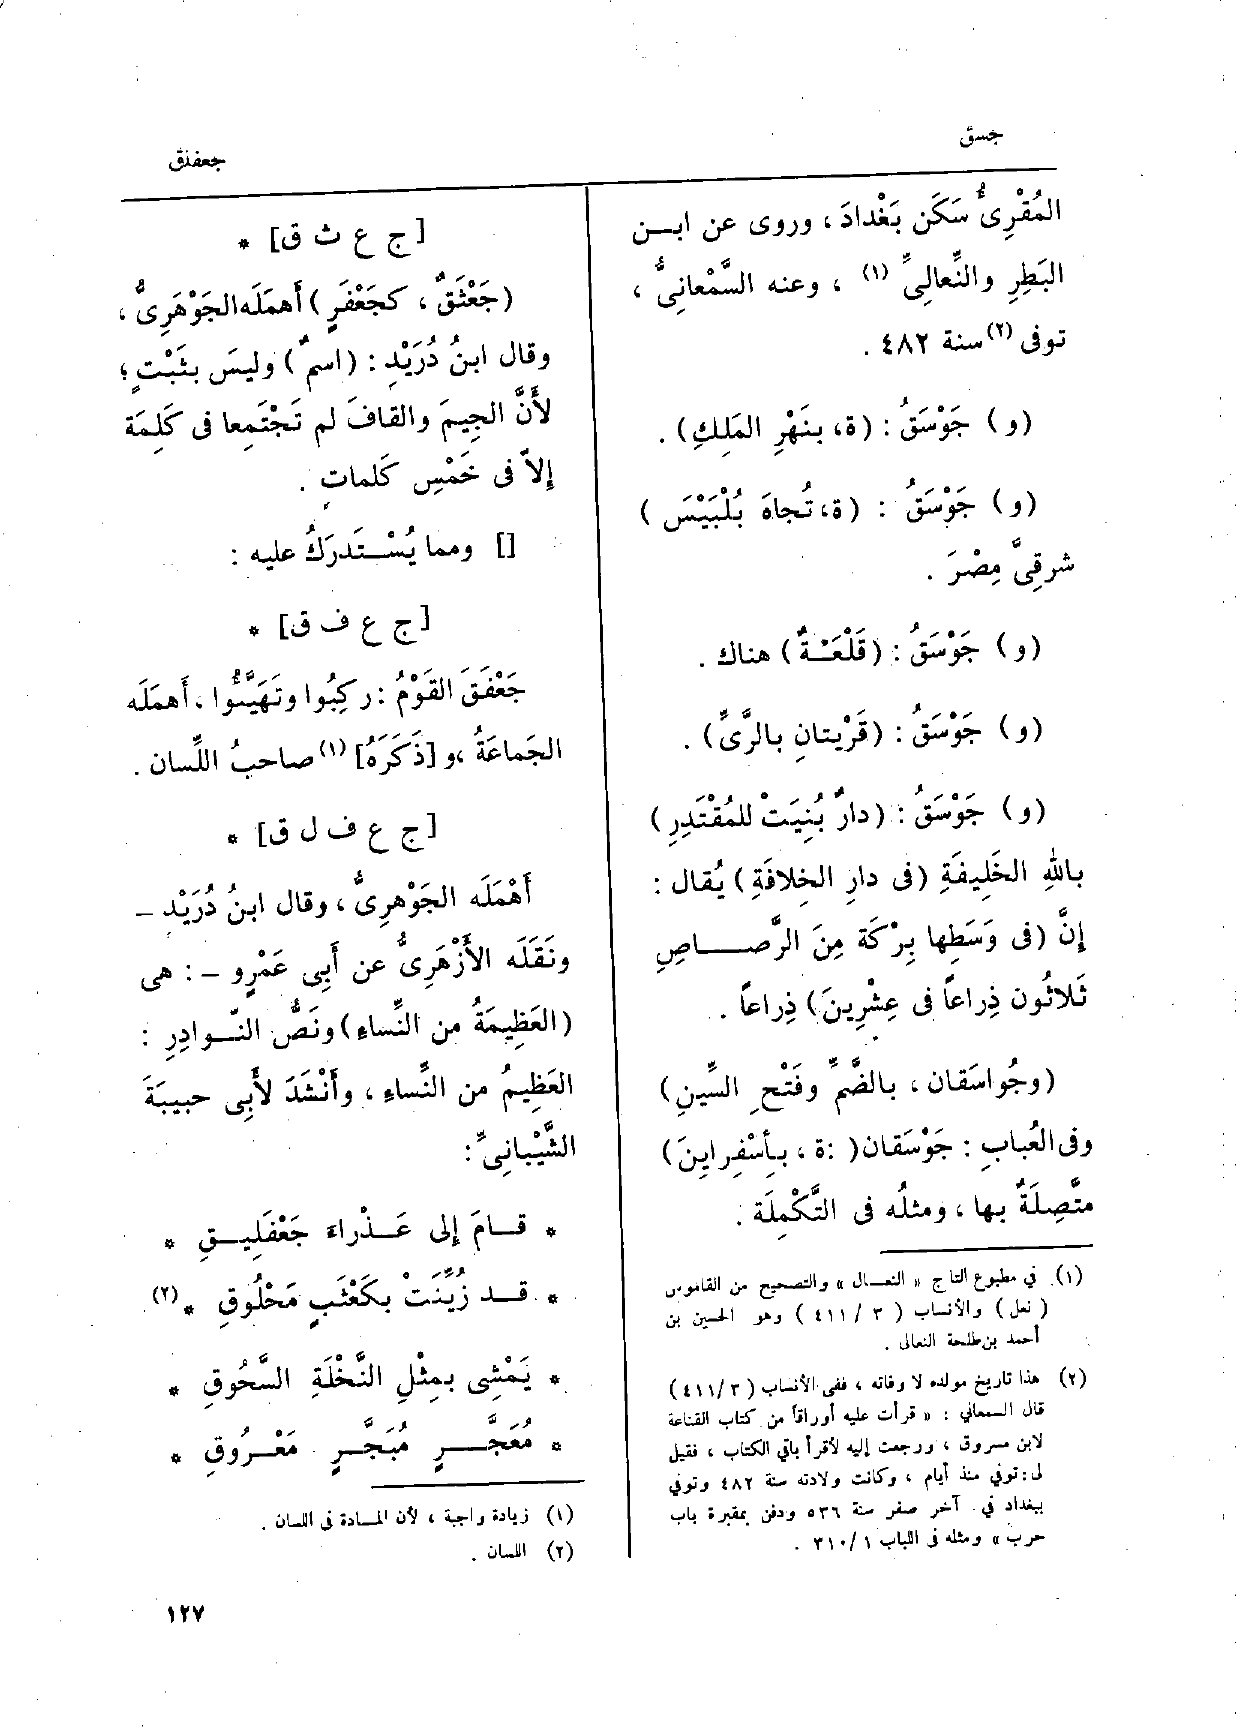 جسق
جعفلق
المُقْرِئُ سَكَن بَغْدادَ ، وروى عن ابــن
البَطِرِ والنِّعالِىِّ (١) ، وعنه السَّمْعانِىُّ ،
توفى (٢) سنة ٤٨٢ .
(و) جَوْسَقُ : (ة، بنَهْرِ المَلِكِ) .
(و) جَوْسَقُ : (ة، تُجاهَ بُلْبَيْسَ )
شرقِىَّ مِصْرَ .
(و) جَوْسَقُ : (قَلْعَــةٌ) هناك .
(و) جَوْسَقُ : (قَرْيتانِ بالرَّىِّ) .
(و) جَوْسَقُ : (دارٌ بُنِيَتْ للمُقْتَدِرِ)
بالله الخَلِيفَةِ (فى دارِ الخِلافَةِ) يُقال :
إنَّ (فى وَسَطِها بِرْكَة مِنَ الرَّصـــاصِ
ثَلاثُون ذِراعاً فى عِشْرِينَ) ذِراعاً .
(وجُواسَقان ، بالضَّمِّ وفَتْحِ السِّينِ)
وفى العُبابِ : جَوْسَقان( :ة ، بِأسْفِرايِنَ)
متَّصِلَةٌ بها ، ومثلُه فى التَّكْمِلَة .
(١) في مطبوع التاج « النعــال » والتصحيح من القاموس
( نعل ) والأنساب ( ٣ / ٤١١ ) وهو الحسين بن
أحمد بن طلحة النعالى .
(٢) هذا تاريخ مولده لا وفاته ، ففى الأنساب ( ٣ / ٤١١ )
قال السمعاني : « قرأت عليه أوراقاً من كتاب القناعة
لابن مسروق ، ورجعت إليه لأقرأ باقي الكتاب ، فقيل
لى : توفي منذ أيام ، وكانت ولادته سنة ٤٨٢ وتوفي
ببغداد في آخر صفر سنة ٥٣٦ ودفن بمقبرة باب
حرب » ومثله فى اللباب ١ / ٣١٠ .
[ ج ع ث ق ] *
(جَعْثَقٌ ، كجَعْفَرٍ) أهمَلَه الجَوْهَرِىُّ ،
وقال ابنُ دُرَيْدٍ : (اسمٌ) وليسَ بثَبْتٍ ؛
لأَنَّ الجِيمَ والقافَ لم تَجْتَمِعا فى كَلِمَة
إلاّ فى خَمْسِ كَلمات .
[] ومما يُسْــتَدرَكُ عليه :
[ ج ع ف ق ] *
جَعْفَقَ القَوْمُ : ركِبُوا وتَهَيَّئُوا . أهمَلَه
الجَماعَةُ ، و [ذَكَرَهُ] (١) صاحبُ اللِّسان .
[ ج ع ف ل ق ] *
أَهْمَلَه الجَوْهرِىُّ ، وقال ابنُ دُرَيْد –
ونَقَلَه الأَزْهَرِىُّ عن أَبِى عَمْرٍو – : هى
(العَظِيمَةُ من النِّساءِ) ونَصُّ النّــوادِرِ :
العَظِيمُ من النِّساءِ ، وأَنْشَدَ لأَبِى حبيبَةَ
الشَّيْبانِىِّ :
* قــامَ إلى عَــذْراءَ جَعْفَلِيــقِ *
* قــد زُيِّنَتْ بكَعْثَبٍ مَحْلُوقِ * (٢)
* يَمْشِى بمِثْلِ النَّخْلَةِ السَّحُوقِ *
* مُعَجَّــرٍ مُبَجَّــرٍ مَعْــرُوقِ *
(١) زيادة واجبة ، لأن المــادة فى اللسان .
(٢) اللسان .
١٢٧